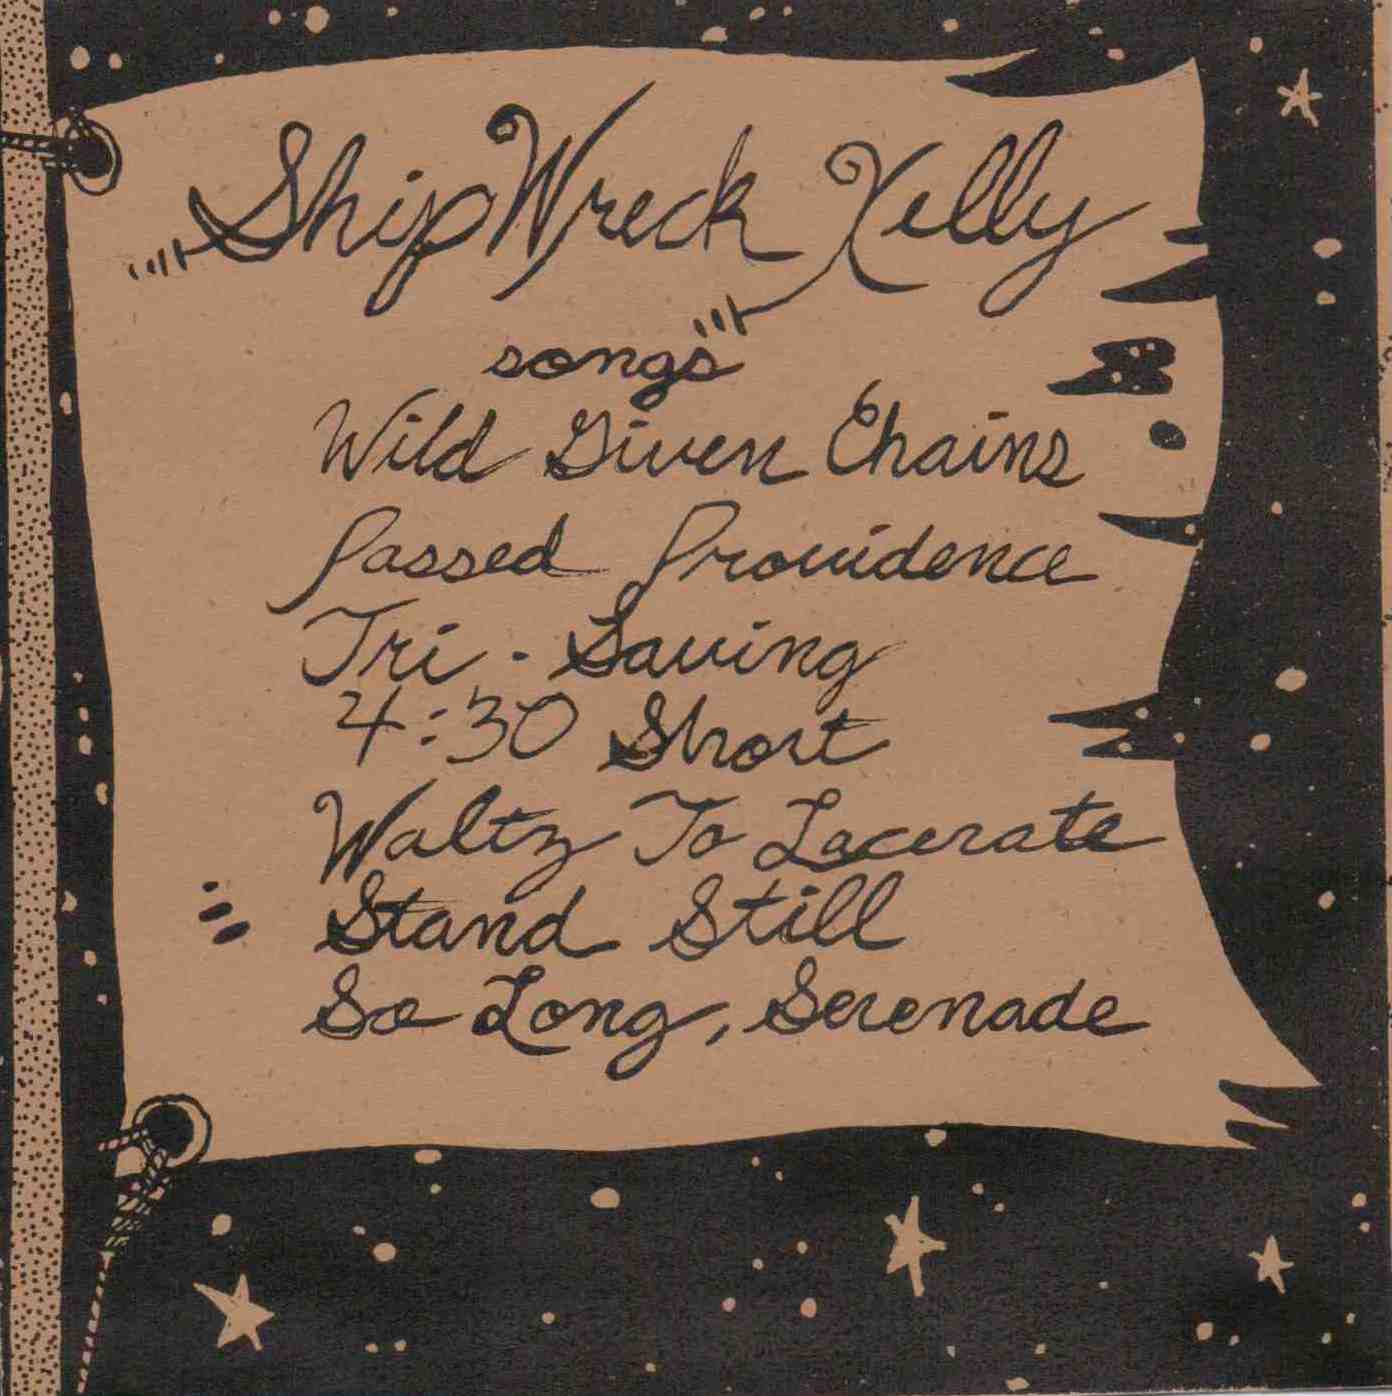 ShipWreck Kelly
songs
Wild Given Chains
Passed Providence
Tri-Saving
4:30 Short
Waltz To Lacerate
Stand Still
So Long, Serenade